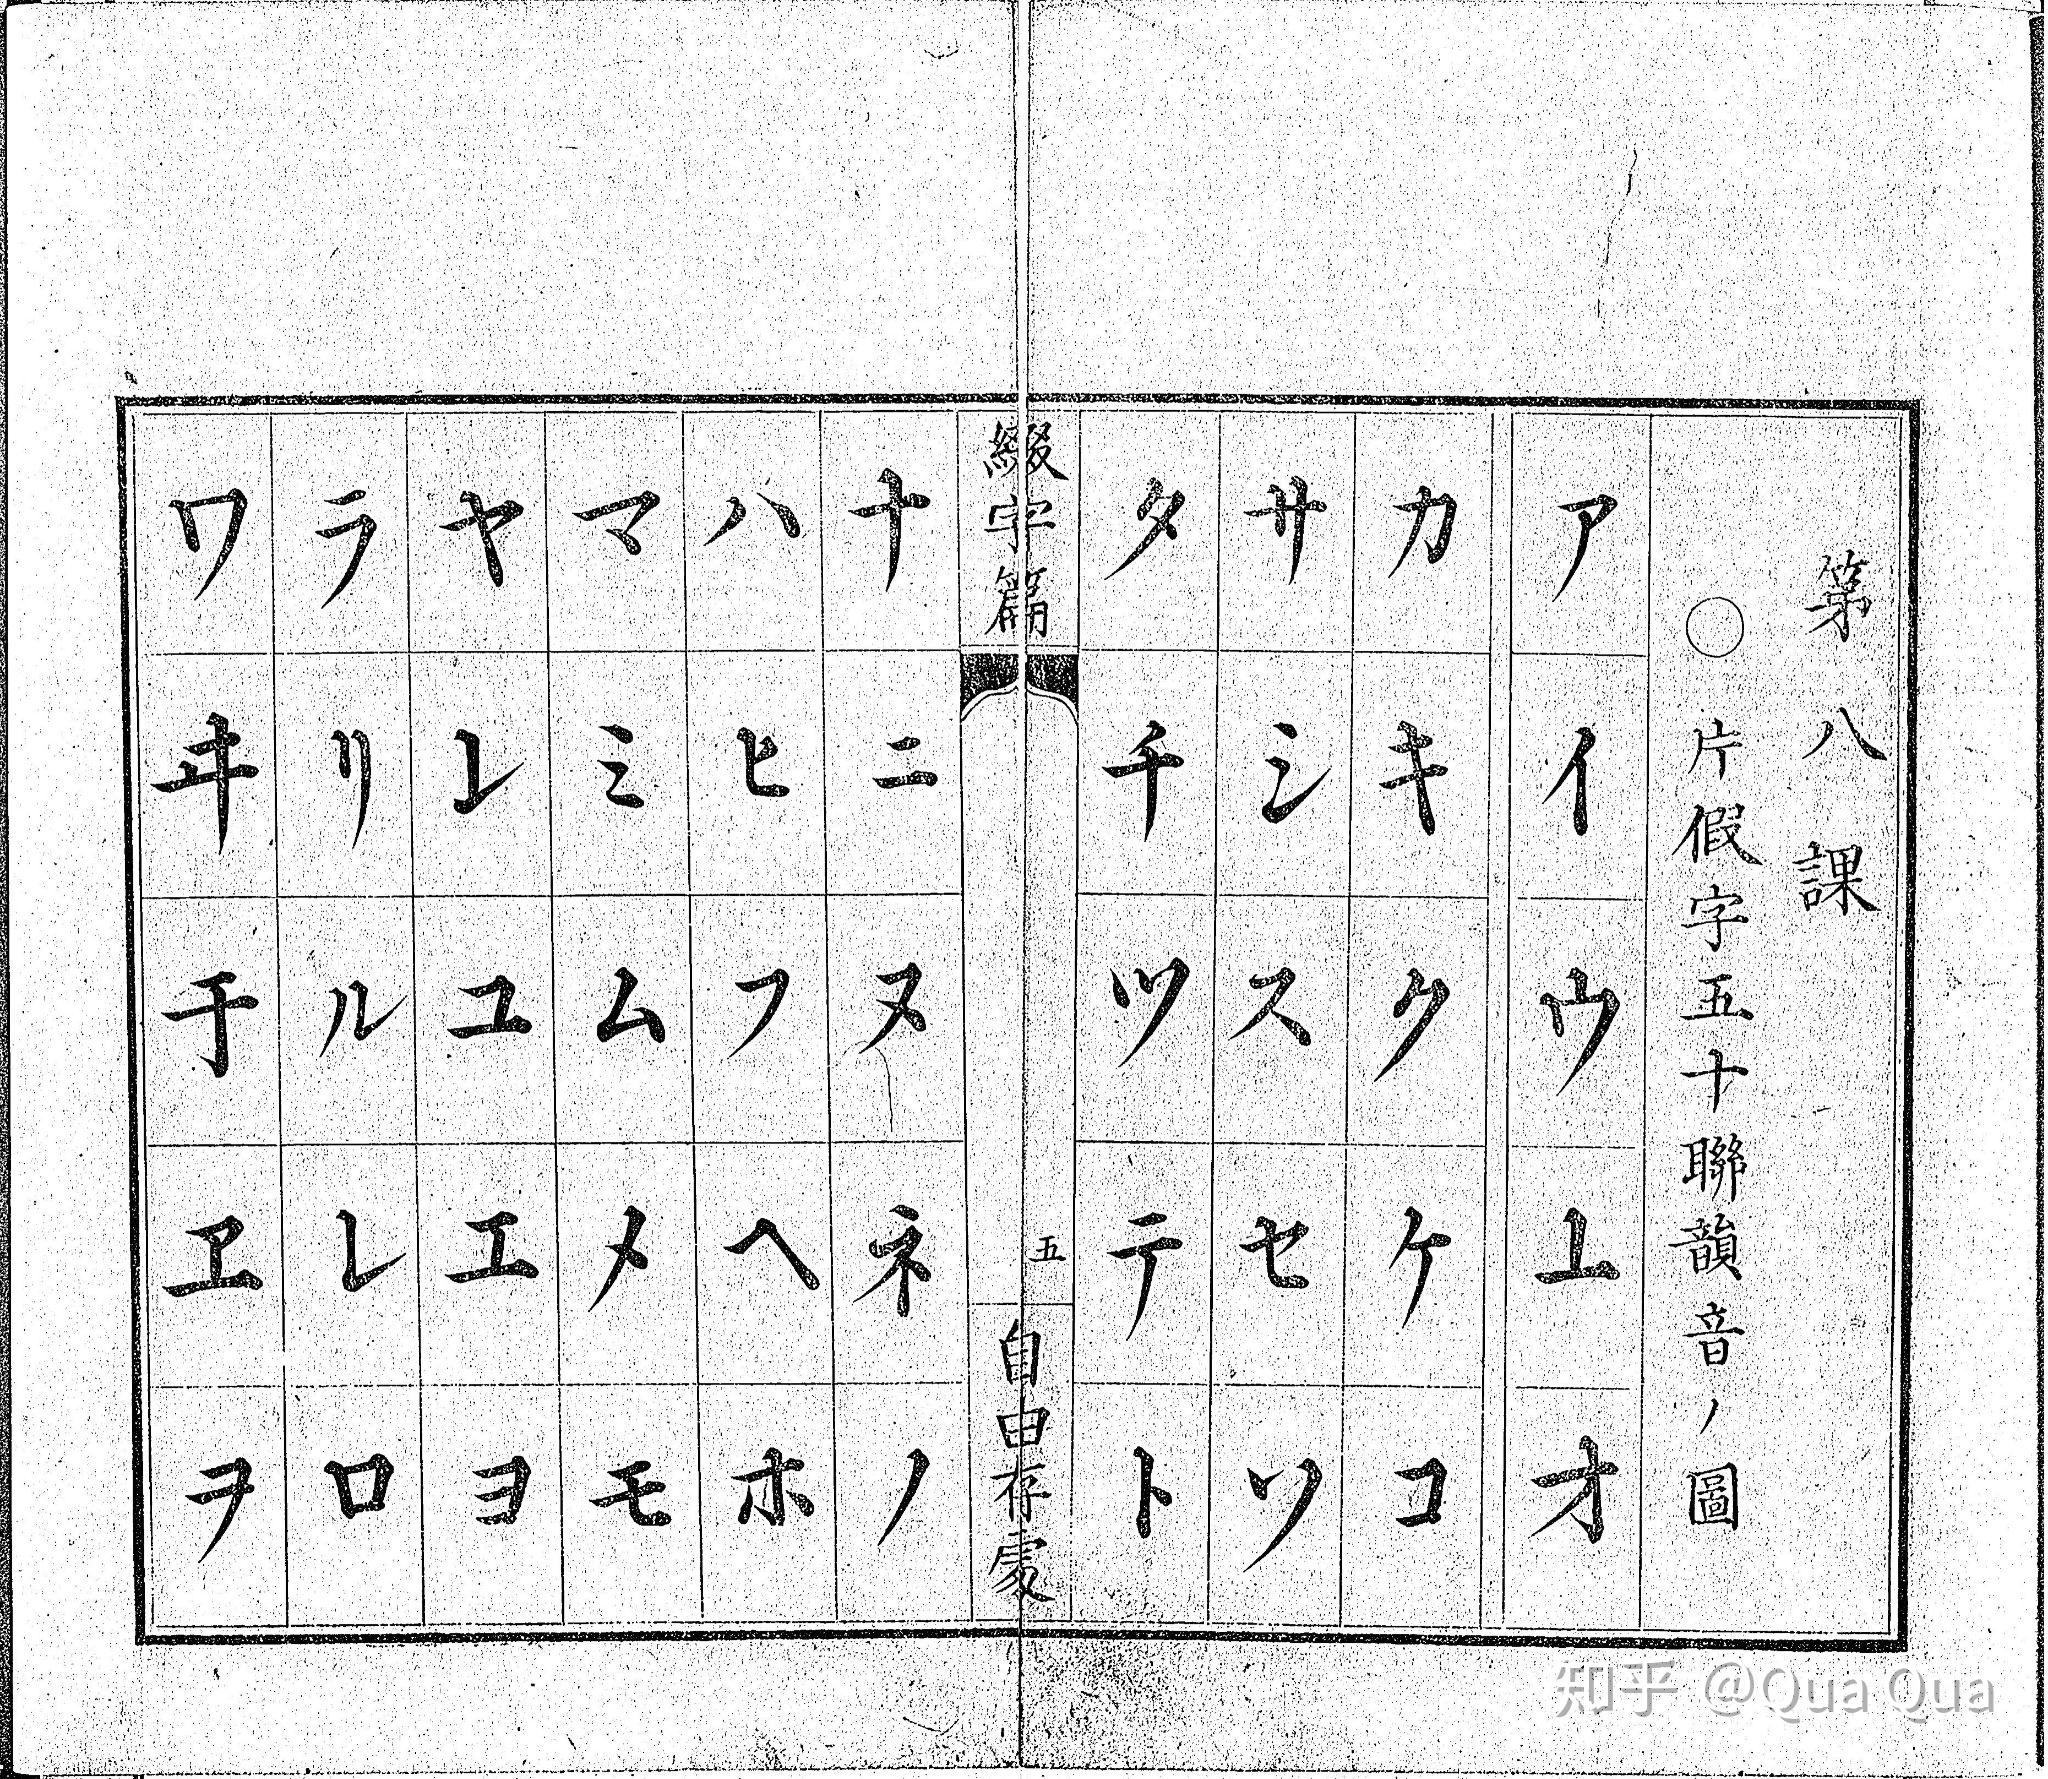 第八課
○片假字五十聯韻音ノ圖
アイウ𛄡オ
カキクケコ
サシスセソ
タチツテト
綴字篇 五 自由存處
ナニヌネノ
ハヒフヘホ
マミムメモ
ヤ𛄠ユエヨ
ラリルレロ
ワヰ𛄢ヱヲ
知乎 @Qua Qua